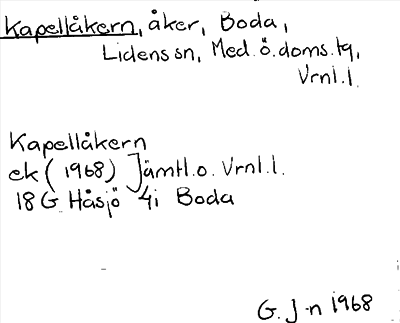 Kapellåkern, åker, Boda,
Lidens sn, Med. ö. doms. tg,
Vrnl. l.
Kapellåkern
ek (1968) Jämtl. o. Vrnl. l.
18 G Håsjö 4i Boda
G. J-n 1968